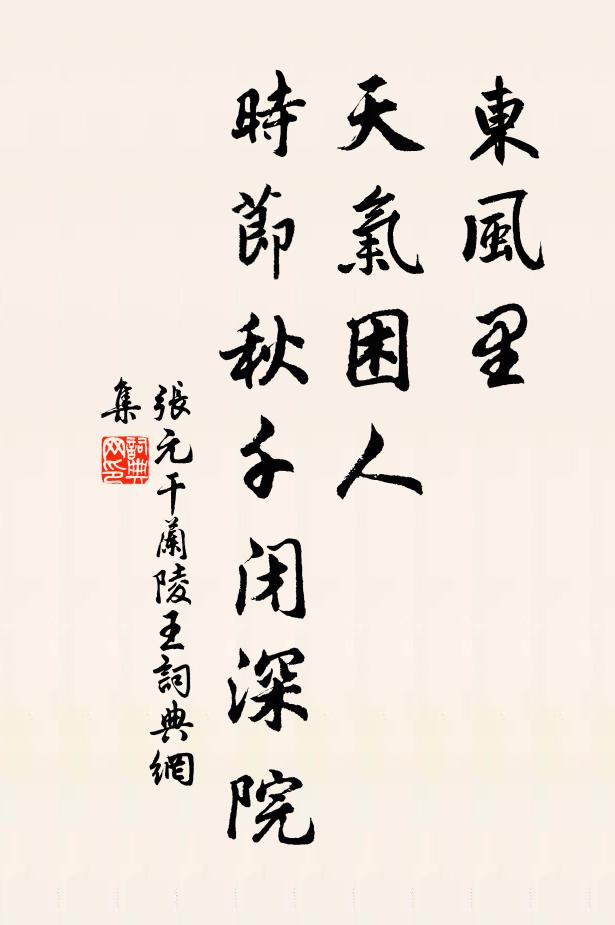 東風里
天氣困人
時節秋千闭深院
張元干蘭陵王詞典網
集
詞典
网印